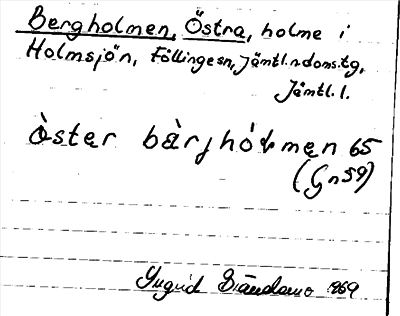 Bergholmen, Östra, holme i
Holmsjön, Föllinge sn, Jämtl. n doms. tg,
Jämtl. l.
òster bàrjhót men 65
(Gn 59)
Yngvid 1969